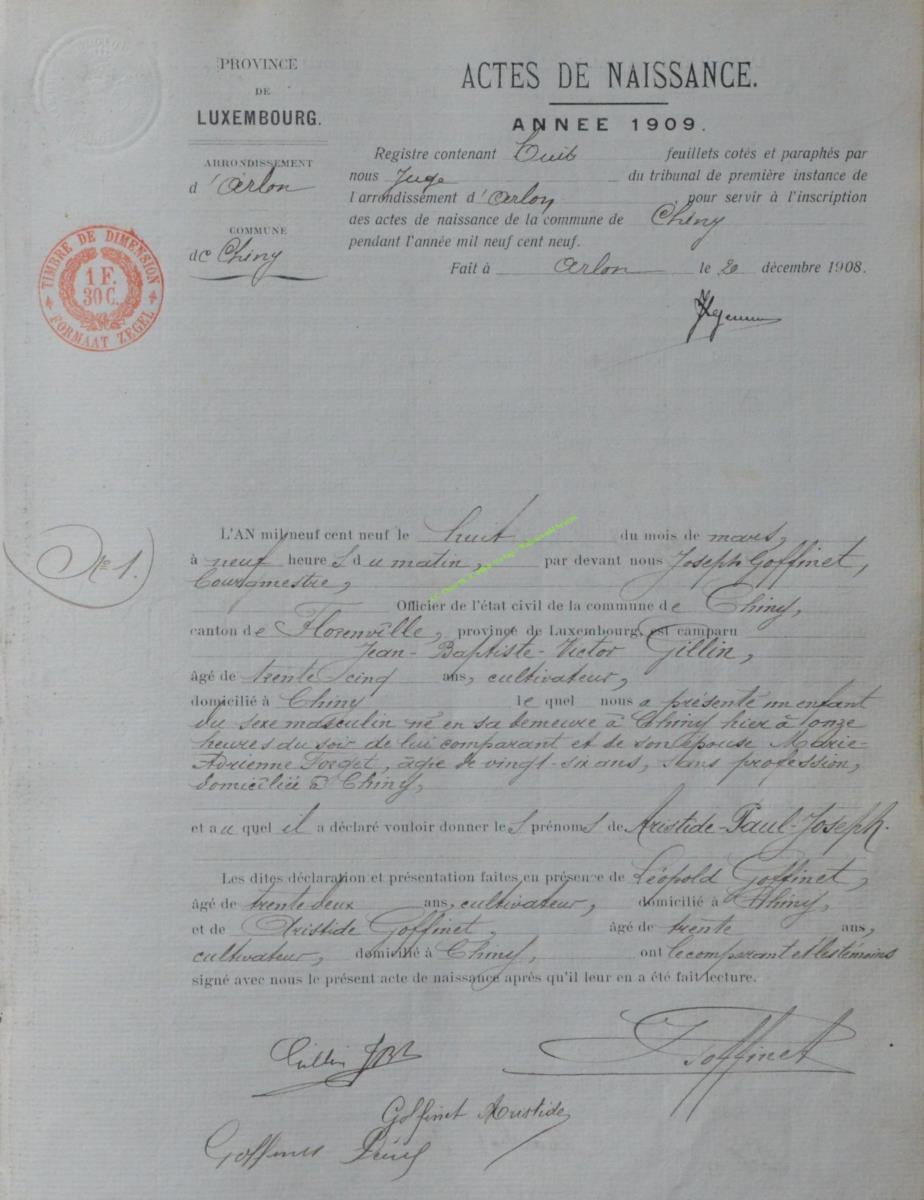 PROVINCE
DE
LUXEMBOURG.
ARRONDISSEMENT
d'Arlon
COMMUNE
de Chiny
TIMBRE DE DIMENSION
1 F.
30 C.
FORMAAT ZEGEL
ACTES DE NAISSANCE.
ANNEE 1909.
Registre contenant huit feuillets cotés et paraphés par
nous Juge du tribunal de première instance de
l'arrondissement d'Arlon pour servir à l'inscription
des actes de naissance de la commune de Chiny
pendant l'année mil neuf cent neuf.
Fait à Arlon le 20 décembre 1908.
No 1.
L'AN mil neuf cent neuf le huit du mois de mars,
à neuf heures du matin, par devant nous Joseph Goffinet,
Bourgmestre,
Officier de l'état civil de la commune de Chiny,
canton de Florenville, province de Luxembourg, est comparu
Jean-Baptiste-Victor Gillin,
âgé de trente cinq ans, cultivateur,
domicilié à Chiny lequel nous a présenté un enfant
du sexe masculin né en sa demeure à Chiny hier à onze
heures du soir de lui comparant et de son épouse Marie-
Adrienne Forget, âgée de vingt-six ans, sans profession,
domiciliée à Chiny,
et auquel il a déclaré vouloir donner les prénoms de Aristide-Paul-Joseph.
Les dites déclaration et présentation faites en présence de Léopold Goffinet,
âgé de trente deux ans, cultivateur, domicilié à Chiny,
et de Aristide Goffinet, âgé de trente ans,
cultivateur, domicilié à Chiny, ont le comparant et les témoins
signé avec nous le présent acte de naissance après qu'il leur en a été fait lecture.
Gillin JBV
J Goffinet
Goffinet Aristide
Goffinet